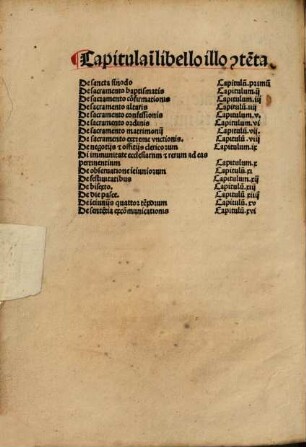 Capitula ī libello illo ꝯtēta
De sancta sinodo Capitulū. primū
De sacramento baptismatis Capitulum. ij
De sacramento cōfirmationis Capitulum. iij
De sacramento altaris Capitulū. iiij
De sacramento confessionis Capitulum. v.
De sacramento ordinis Capitulum. vi
De sacramento matrimonij Capitulū. vij.
De sacramento extreme vnctionis. Capitulū. viij
De negotijs ⁊ offitijs clericorum Capitulum. ix
De immunitate ecclesiarum ⁊ rerum ad eas
pertinentium Capitulum. x
De obseruatione ieiuniorum Capitulū. xi
De festiuitatibus Capitulum. xij
De bisexto. Capitulū. xiij
De die pasce. Capitulū. xiiij
De ieiunijs quattuor tēporum Capitulū. xv
De sententia excōmunicationis Capitulū. xvi